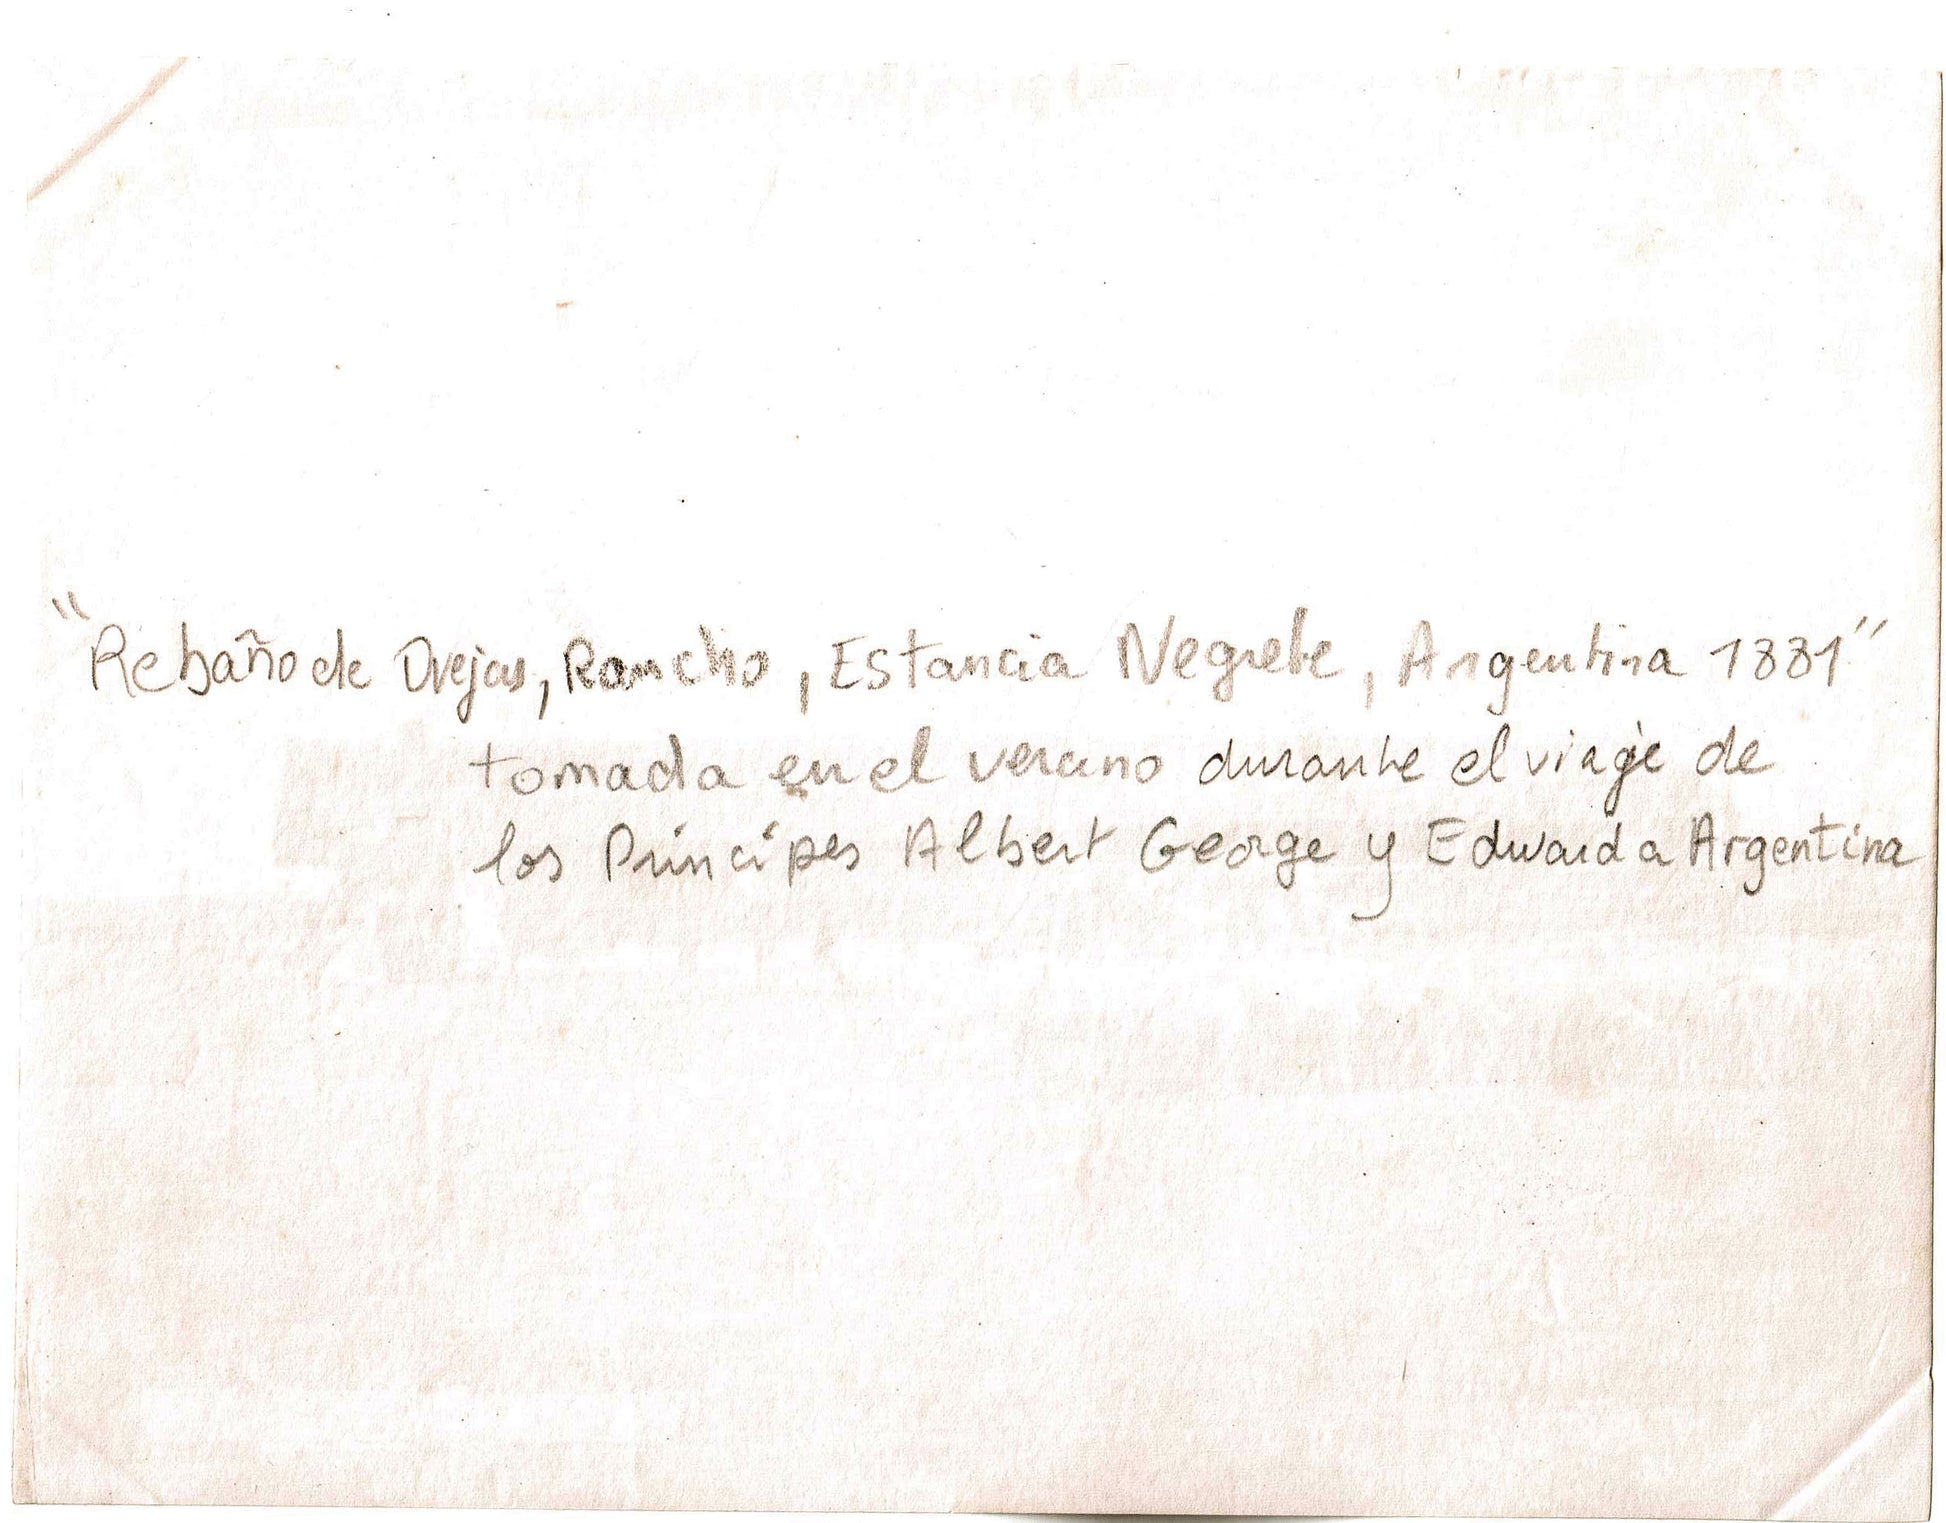 "Rebaño de Ovejas, Rancho, Estancia Negrete, Argentina 1881"
tomada en el verano durante el viaje de
los Príncipes Albert George y Edward a Argentina